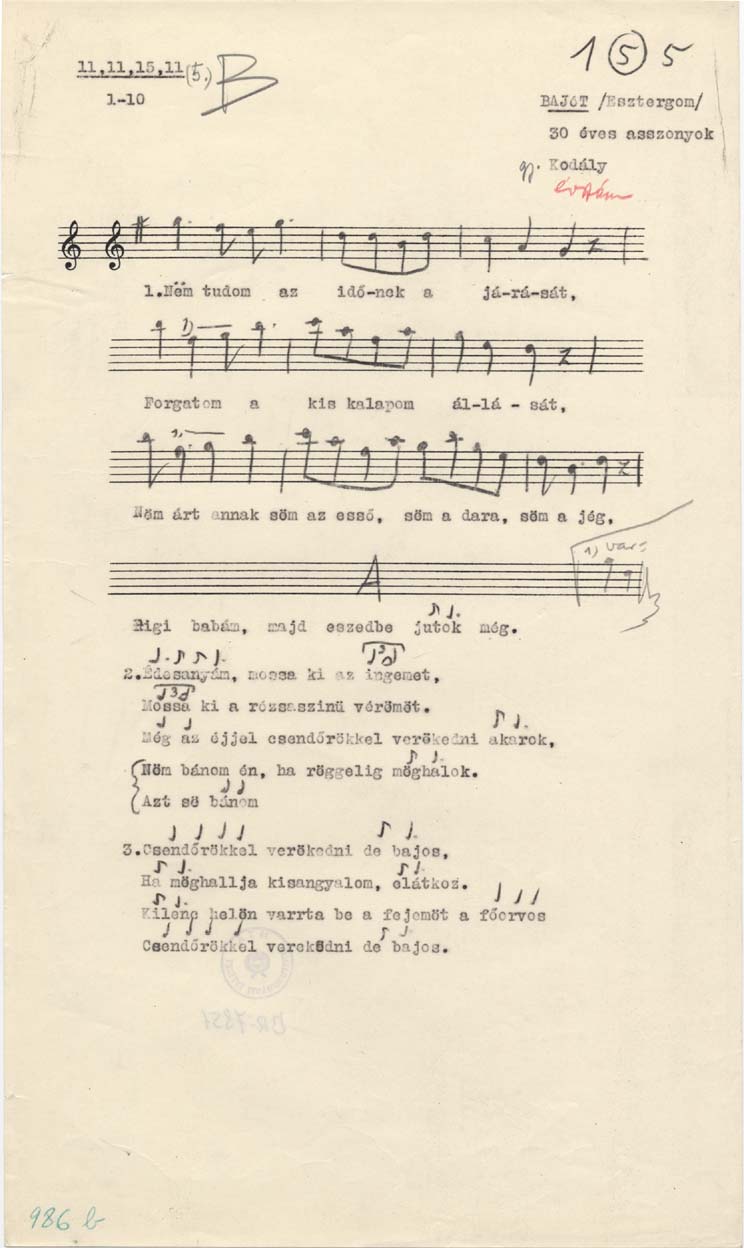 11,11,15,11 (5.) B
1 5 5
1-10
BAJÓT /Esztergom/
30 éves asszonyok
gy. Kodály
1.Nëm tudom az idő-nek a já-rá-sát,
1)
Forgatom a kis kalapom ál-lá - sát,
1.
Nöm árt annak söm az eső, söm a dara, söm a jég,
A
1) var:
Rigi babám, majd eszedbe jutok még.
3
2.Édesanyám, mossa ki az ingemet,
3
Mossa ki a rózsaszinü vérömöt.
Még az éjjel csendőrökkel verökedni akarok,
Nöm bánom én, ha röggelig möghalok.
Azt sö bánom
3.Csendőrökkel verökedni de bajos,
Ha möghallja kisangyalom, elátkoz.
Kilenc helön varrta be a fejemöt a főorvos
Csendőrökkel vereködni de bajos.
986 b